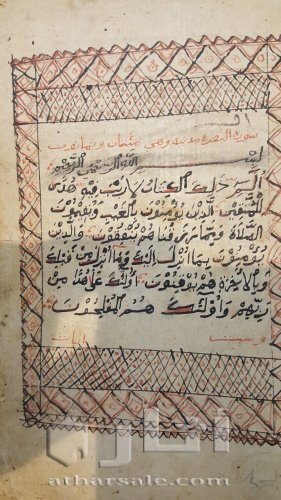 سورة البقرة مدنية وهي مئتان وثمانون
بسم الله الرحمن الرحيم
الم ذلك الكتاب لا ريب فيه هدى
للمتقين الذين يؤمنون بالغيب ويقيمون
الصلاة ومما رزقناهم ينفقون والذين
يؤمنون بما أنزل إليك وما أنزل من قبلك
وبالآخرة هم يوقنون أولئك على هدى من
ربهم وأولئك هم المفلحون
آيات
atharsale.com